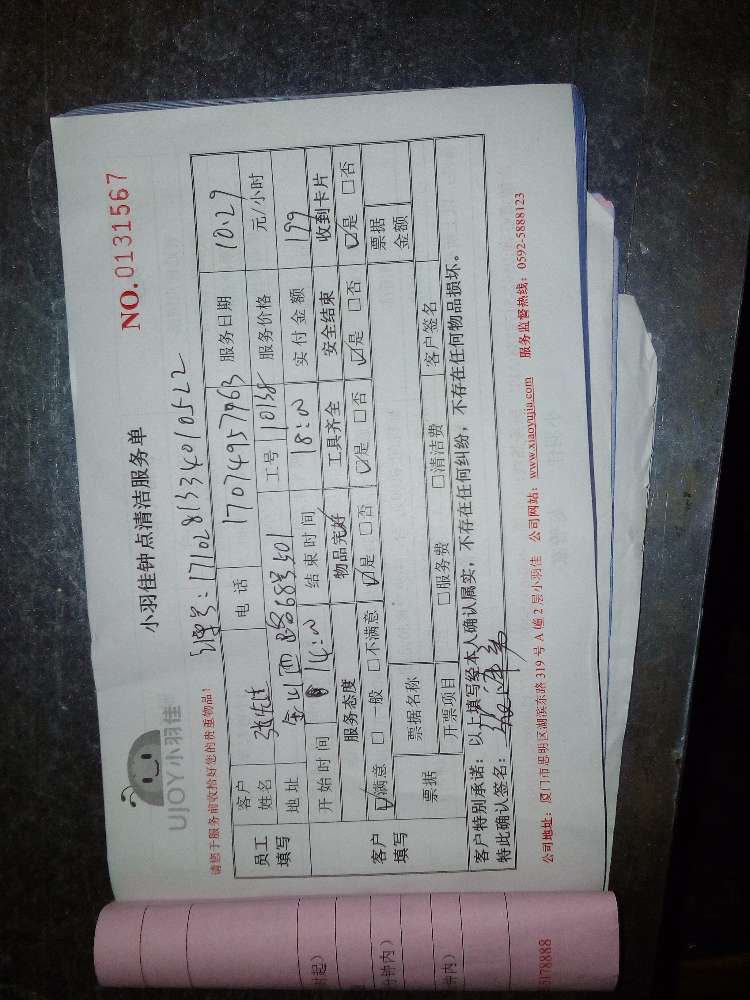 小羽佳钟点清洁服务单
NO.0131567
UJOY小羽佳
请您于服务前收拾好您的贵重物品!
1710281334010522
员工填写
客户姓名 张先生 电话 17074957963 服务日期 10.29
地址 工号 110138 服务价格 元/小时
客户填写
开始时间 14:00 结束时间 18:00 实付金额 199
服务态度 物品完好 工具齐全 安全结束 收到卡片
☑满意 □一般 □不满意 ☑是 □否 ☑是 □否 ☑是 □否 ☑是 □否
票据 票据名称 票据金额
开票项目 □服务费 □清洁费 客户签名
客户特别承诺:以上填写经本人确认属实,不存在任何纠纷,不存在任何物品损坏。
特此确认签名:
公司地址:厦门市思明区湖滨东路 319 号 A 幢 2 层小羽佳 公司网站:www.xiaoyujia.com 服务监督热线:0592-5888123
时起)
分钟内)
钟内)
5178888